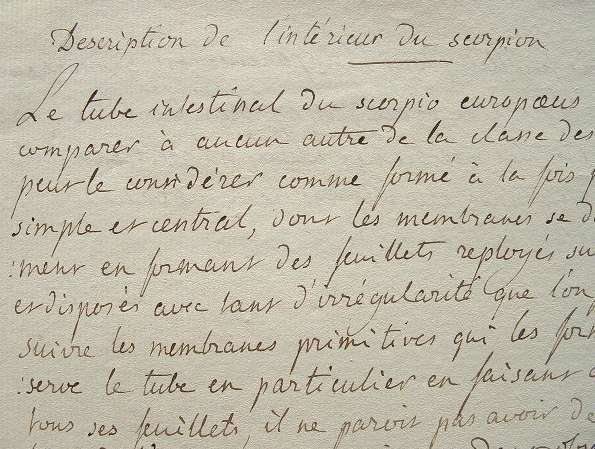 Description de l'intérieur du scorpion
Le tube intestinal du scorpio europœus
comparer à aucun autre de la classe des
peut le considérer comme formé à la fois
simple et central, dont les membranes se
:ment en formant des feuillets reployés su
et disposés avec tant d'irrégularité que l'on
suivre les membranes primitives qui les form
:serve le tube en particulier en faisant
tous ses feuillets, il ne paroit pas avoir de